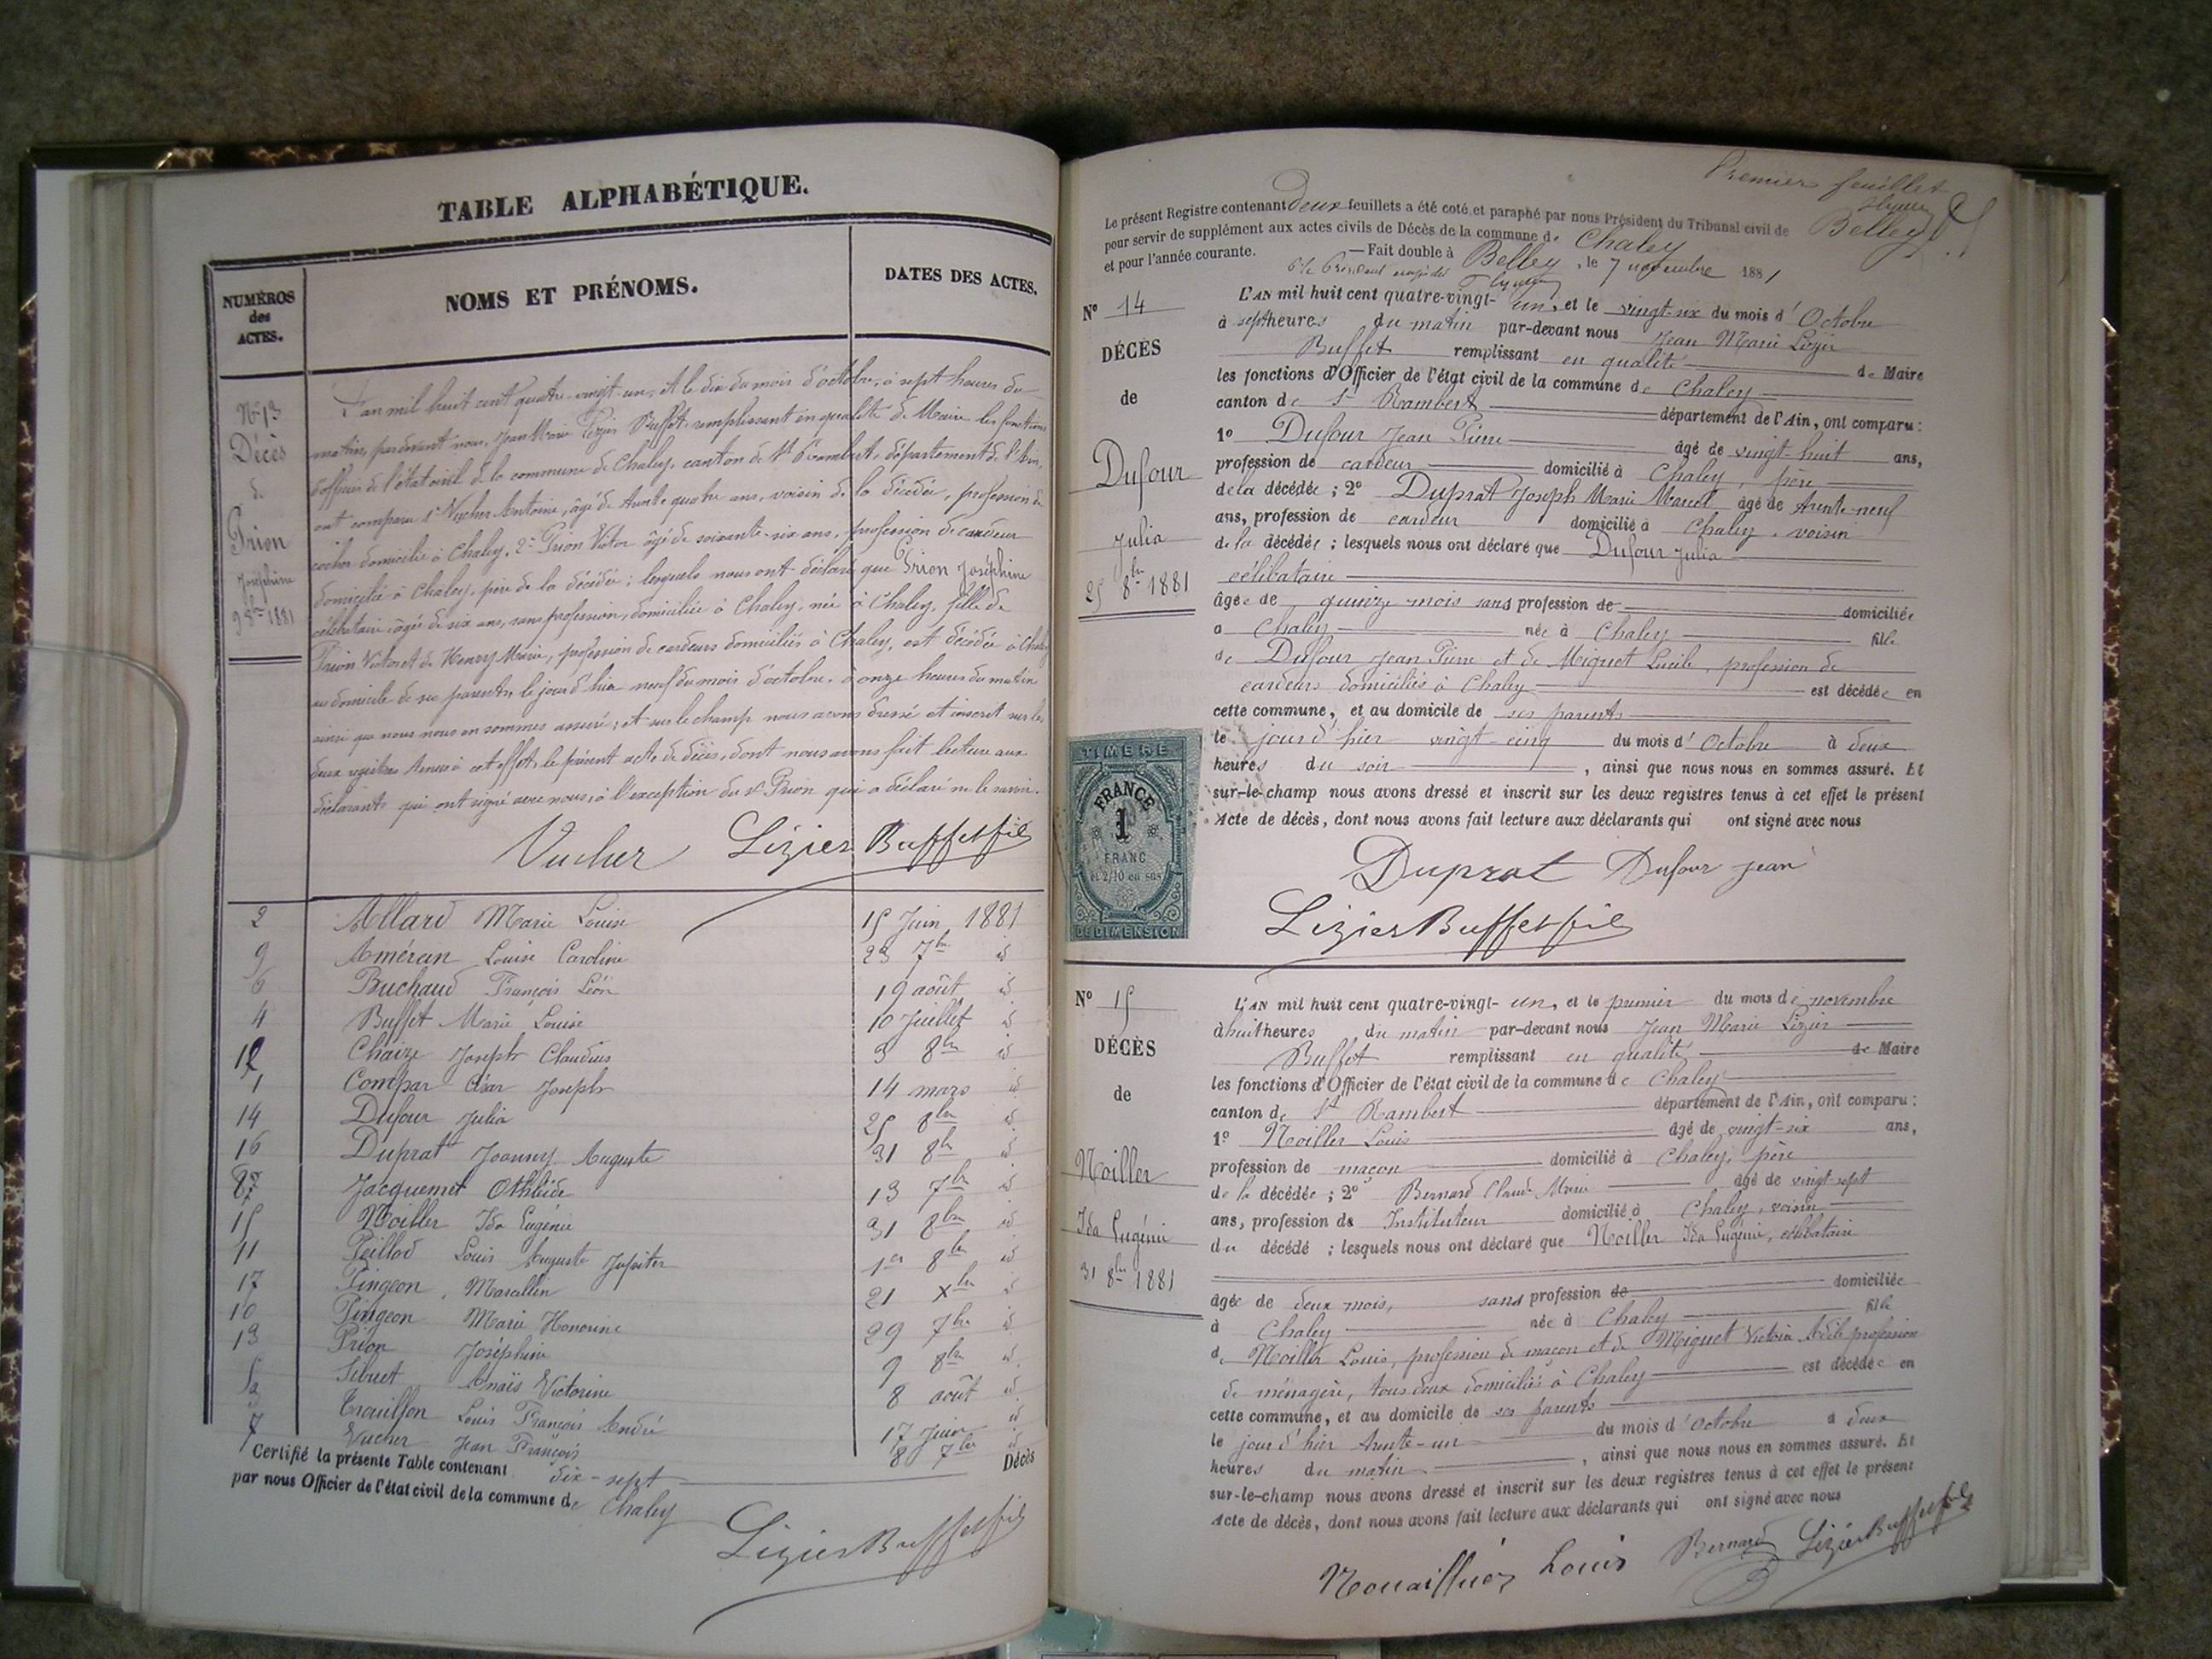 TABLE ALPHABÉTIQUE.
NUMÉROS
des
ACTES.
NOMS ET PRÉNOMS.
DATES DES ACTES.
N° 13
Décès
de
Prion
Joséphine
9 8bre 1881
L'an mil huit cent quatre-vingt-un, et le dix du mois d'octobre, à sept heures du
matin, pardevant nous, Jean Marie Lézier Buffet remplissant en qualité de Maire les fonctions
d'officier de l'état civil de la commune de Chaley, canton de St Rambert, département de l'Ain,
ont comparu 1° Vucher Antoine, âgé de trente quatre ans, voisin de la décédée, profession de
cocher domicilié à Chaley, 2° Prion Victor âgé de soixante-six ans, profession de cardeur
domicilié à Chaley, père de la décédée; lesquels nous ont déclaré que Prion Joséphine
célibataire, âgée de six ans, sans profession, domiciliée à Chaley, née à Chaley, fille de
Prion Victor et de Henry Marie, profession de cardeurs domiciliés à Chaley, est décédée à Chaley
au domicile de ses parents le jour d'hier neuf du mois d'octobre, à onze heures du matin
ainsi que nous nous en sommes assuré; et sur le champ nous avons dressé et inscrit sur les
deux registres tenus à cet effet, le présent acte de décès, dont nous avons fait lecture aux
déclarants qui ont signé avec nous, à l'exception du st Prion qui a déclaré ne le savoir.
Vucher Lézier Buffet fils
2 Allard Marie Louise 15 Juin 1881
9 Améran Louise Caroline 23 7bre id
6 Buchaud François Léon 19 août id
4 Buffet Marie Louise 10 Juillet id
12 Chaize Joseph Claudius 3 8bre id
1 Compar César Joseph 14 mars id
14 Dufour Julia 25 8bre id
16 Duprat Joanny Auguste 31 8bre id
8 Jacquemet Othilde 13 7bre id
15 Noiller Ida Eugénie 31 8bre id
11 Peillod Louis Auguste Jupiter 1er 8bre id
17 Pingeon Marcellin 21 Xbre id
10 Pingeon Marie Honorine 29 7bre id
13 Prion Joséphine 9 8bre id
5 Sibuet Anaïs Victorine 8 août id
3 Trouillon Louis François André 17 Juin id
7 Vucher Jean François 8 7bre id
Certifié la présente Table contenant dix-sept Décès
par nous Officier de l'état civil de la commune de Chaley
Lézier Buffet fils
Premier feuillet
Le présent Registre contenant Deux feuillets a été coté et paraphé par nous Président du Tribunal civil de Belley
pour servir de supplément aux actes civils de Décès de la commune de Chaley
et pour l'année courante. — Fait double à Belley, le 7 novembre 1881
N° 14
DÉCÈS
de
Dufour
Julia
25 8bre 1881
L'AN mil huit cent quatre-vingt-un, et le vingt-six du mois d'Octobre
à sept heures du matin par-devant nous Jean Marie Lézier
Buffet remplissant en qualité de Maire
les fonctions d'Officier de l'état civil de la commune de Chaley
canton de St Rambert département de l'Ain, ont comparu :
1° Dufour Jean Pierre âgé de vingt-huit ans,
profession de cardeur domicilié à Chaley, père
de la décédée ; 2° Duprat Joseph Marie Marcel âgé de trente-neuf
ans, profession de cardeur domicilié à Chaley, voisin
de la décédée ; lesquels nous ont déclaré que Dufour Julia
célibataire
âgée de quinze mois sans profession de domiciliée
à Chaley née à Chaley fille
de Dufour Jean Pierre et de Miguet Lucile, profession de
cardeurs domiciliés à Chaley est décédée en
cette commune, et au domicile de ses parents
le jour d'hier vingt-cinq du mois d'Octobre à deux
heures du soir, ainsi que nous nous en sommes assuré. Et
sur-le-champ nous avons dressé et inscrit sur les deux registres tenus à cet effet le présent
Acte de décès, dont nous avons fait lecture aux déclarants qui ont signé avec nous
TIMBRE
FRANCE
1
FRANC
et 2/10 en sus
DE DIMENSION
Duprat Dufour jean
Lézier Buffet fils
N° 15
DÉCÈS
de
Noiller
Ida Eugénie
31 8bre 1881
L'AN mil huit cent quatre-vingt-un, et le premier du mois de novembre
à huit heures du matin par-devant nous Jean Marie Lézier
Buffet remplissant en qualité de Maire
les fonctions d'Officier de l'état civil de la commune de Chaley
canton de St Rambert département de l'Ain, ont comparu :
1° Noiller Louis âgé de vingt-six ans,
profession de maçon domicilié à Chaley, père
de la décédée ; 2° Bernard Claude Marie âgé de vingt-sept
ans, profession de Instituteur domicilié à Chaley, voisin
du décédé ; lesquels nous ont déclaré que Noiller Ida Eugénie, célibataire
âgée de deux mois, sans profession de domiciliée
à Chaley née à Chaley fille
de Noiller Louis, profession de maçon et de Miguet Victoria Adèle profession
de ménagère, tous deux domiciliés à Chaley est décédée en
cette commune, et au domicile de ses parents
le jour d'hier trente-un du mois d'octobre à deux
heures du matin, ainsi que nous nous en sommes assuré. Et
sur-le-champ nous avons dressé et inscrit sur les deux registres tenus à cet effet le présent
Acte de décès, dont nous avons fait lecture aux déclarants qui ont signé avec nous
Louis Bernard Lézier Buffet fils